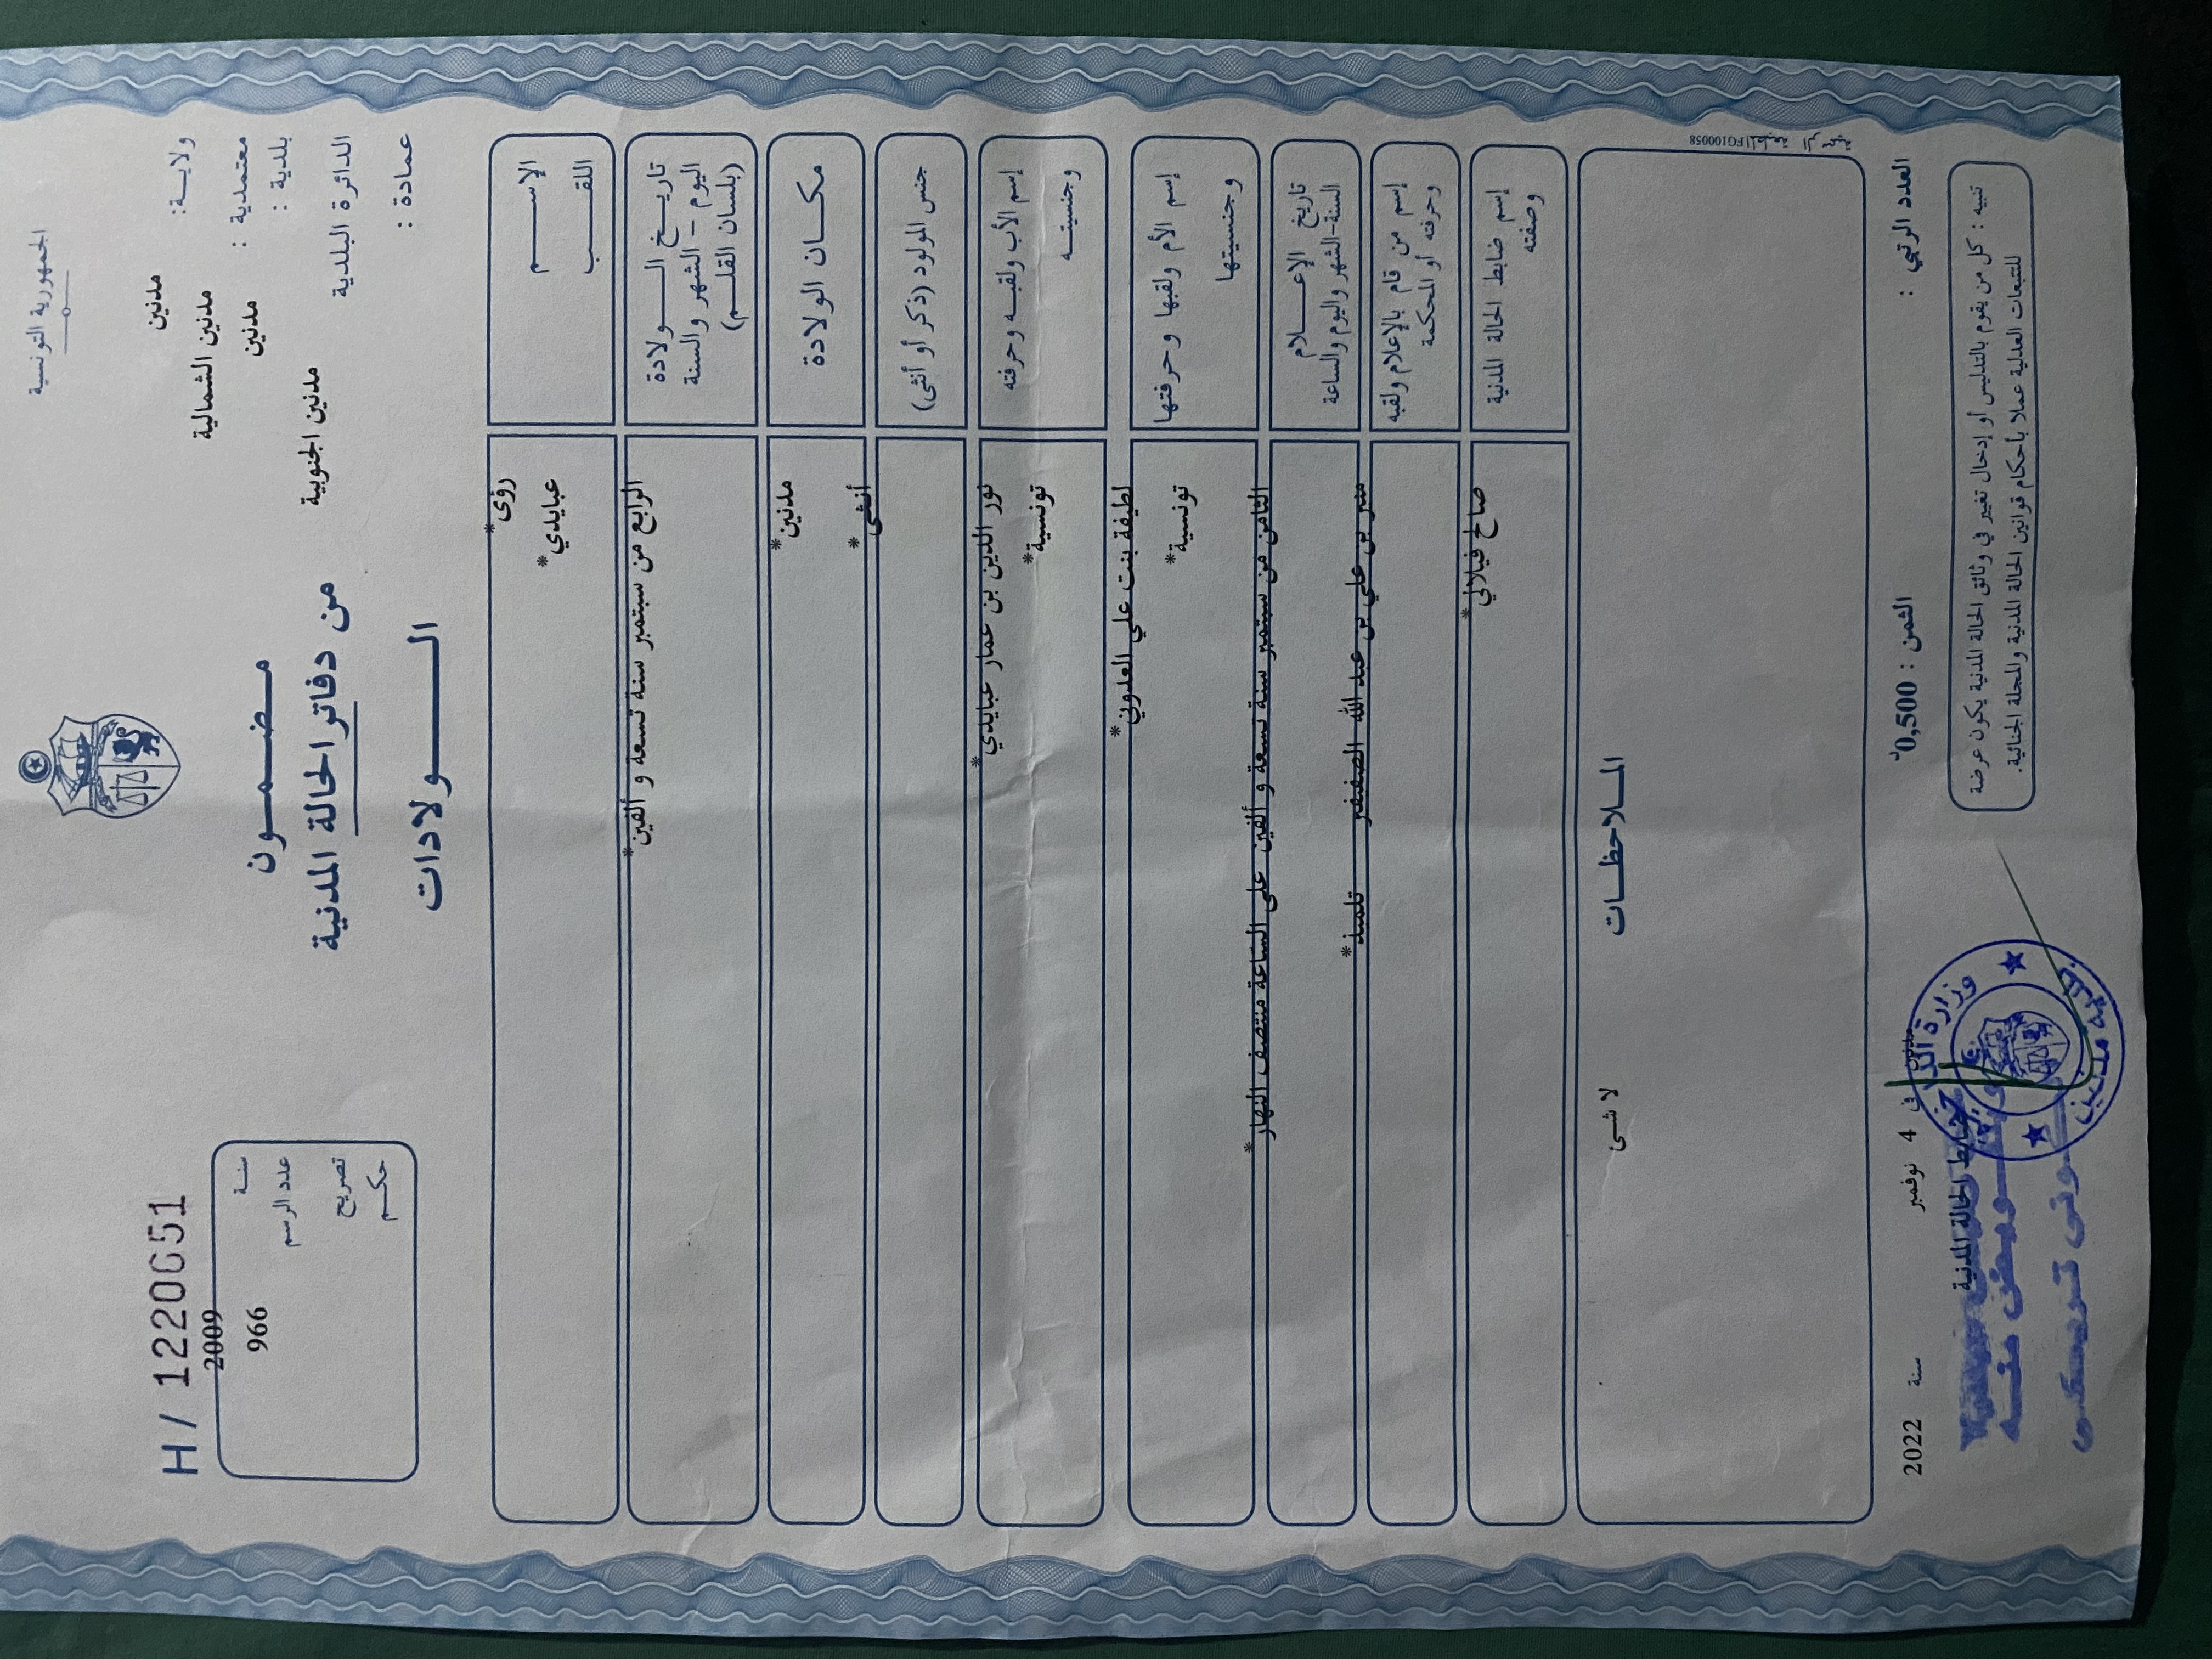 الجمهورية التونسية
ولاية: مدنين
معتمدية : مدنين الشمالية
بلدية : مدنين
الدائرة البلدية مدنين الجنوبية
عمادة :
مضمون
من دفاتر الحالة المدنية
الولادات
H/ 1220651
سنة 2009
عدد الرسم 966
تصريح
حكم
الإسم رؤى*
اللقب عبايدي*
تاريخ الولادة
اليوم - الشهر والسنة
(بلسان القلم)
الرابع من سبتمبر سنة تسعة و ألفين*
مكان الولادة مدنين*
جنس المولود (ذكر أو أنثى) أنثى*
إسم الأب ولقبه وحرفته نور الدين بن عمار عبايدي*
وجنسيته تونسية*
إسم الأم ولقبها وحرفتها لطيفة بنت علي العلدوني*
وجنسيتها تونسية*
تاريخ الإعلام
السنة-الشهر واليوم والساعة
الثامن من سبتمبر سنة تسعة و ألفين على الساعة منتصف النهار*
إسم من قام بالإعلام ولقبه
وحرفته أو المحكمة
منير بن علي بن عبد الله الصفنفر تلميذ*
إسم ضابط الحالة المدنية
وصفته
صالح فيلالي*
الملاحظات
لا شئ
المطبعة الرسمية FG100058
العدد الرتبي :
الثمن : 0,500د
مدنين في 4 نوفمبر سنة 2022
ضابط الحالة المدنية
تنبيه : كل من يقوم بالتدليس أو إدخال تغيير في وثائق الحالة المدنية يكون عرضة
للتتبعات العدلية عملا بأحكام قوانين الحالة المدنية والمجلة الجنائية.
وبتفويض منه